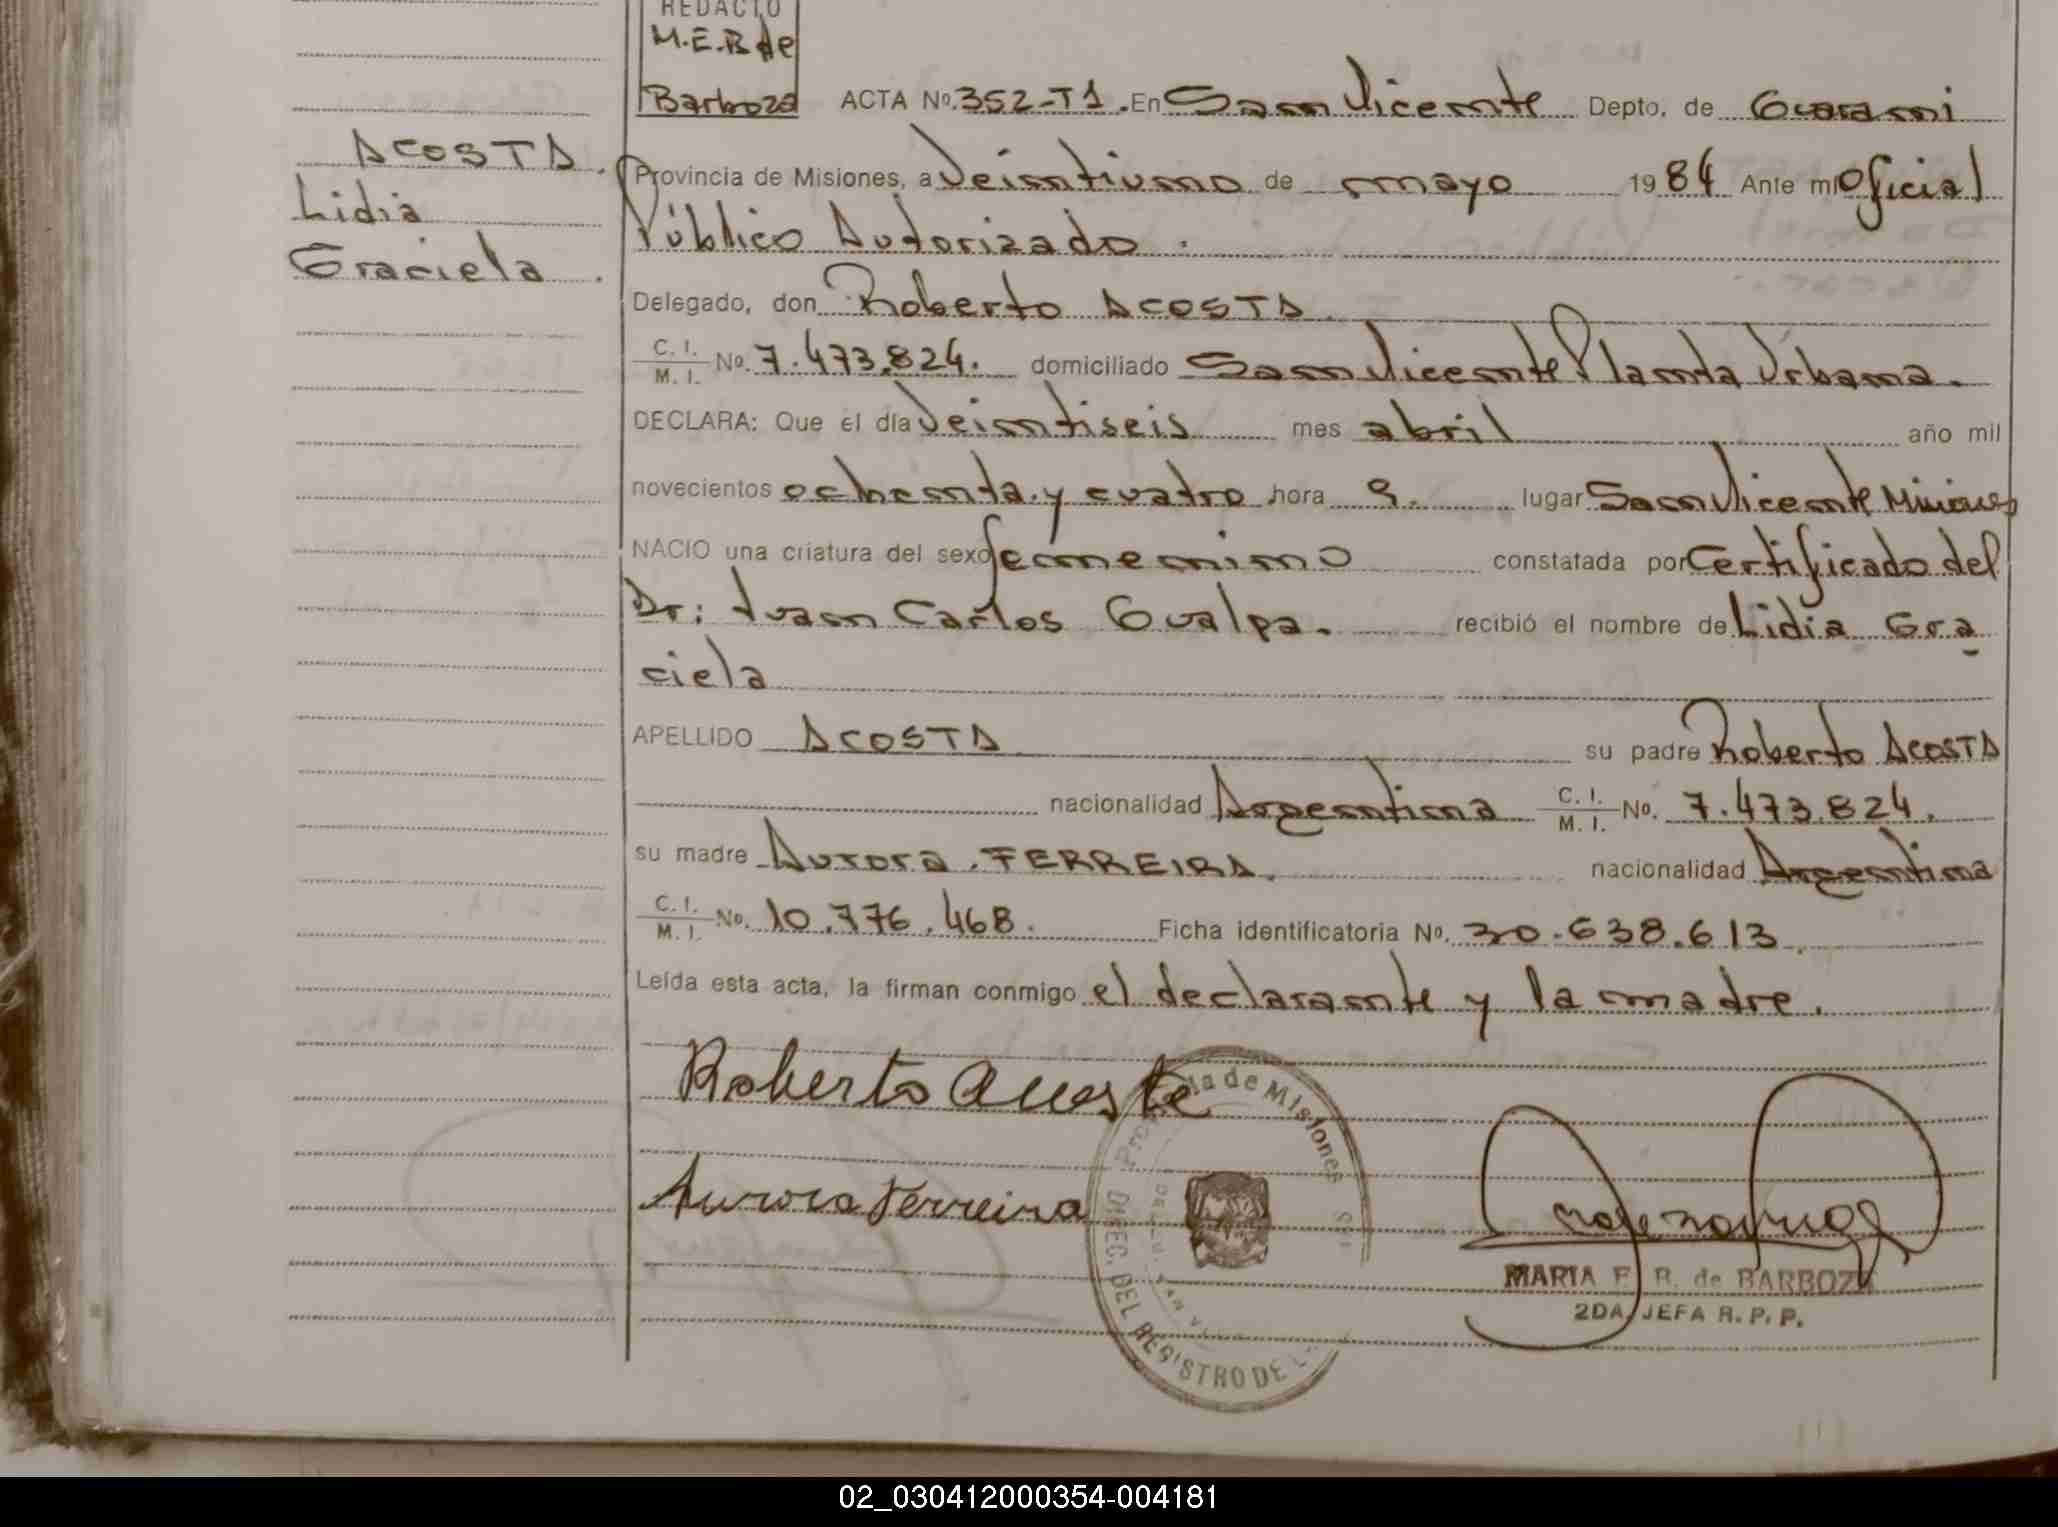 REDACTO
M.E.B de
Barboza
ACTA Nº. 352-T1. En San Vicente Depto. de Guarani
ACOSTA.
Lidia
Graciela.
Provincia de Misiones, a Veintiuno de mayo 1984 Ante mi Oficial
Público Autorizado.
Delegado, don Roberto ACOSTA.
C. I. / M. I. Nº. 7.473.824. domiciliado San Vicente Planta Urbana.
DECLARA: Que el día Veintiseis mes abril año mil
novecientos ochenta y cuatro hora 9. lugar San Vicente Misiones
NACIO una criatura del sexo femenino constatada por Certificado del
Dr: Juan Carlos Gualpa. recibió el nombre de Lidia Gra
ciela
APELLIDO ACOSTA su padre Roberto ACOSTA
nacionalidad Argentina C. I. / M. I. Nº. 7.473.824.
su madre Aurora FERREIRA. nacionalidad Argentina
C. I. / M. I. Nº. 10.776.468. Ficha identificatoria Nº. 30.638.613.
Leída esta acta, la firman conmigo el declarante y la madre.
Roberto Acosta
Aurora Ferreira
Provincia de Misiones
DIREC. DEL REGISTRO DE
MARIA E. B. de BARBOZA
2DA. JEFA R. P. P.
02_030412000354-004181